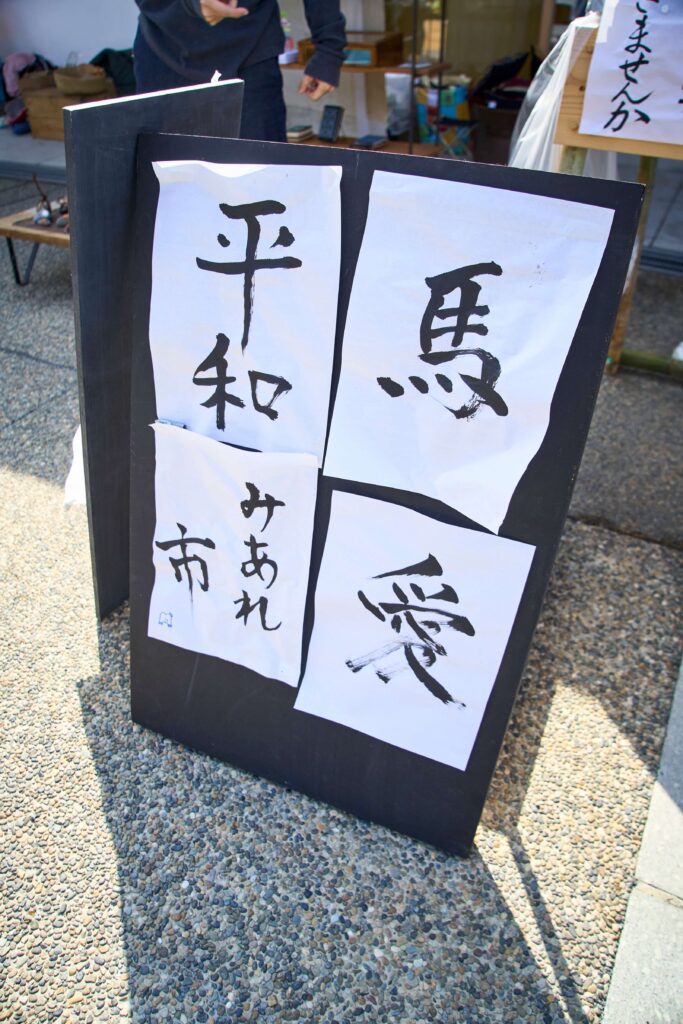 平和
馬
みあれ
市
愛
ませんか